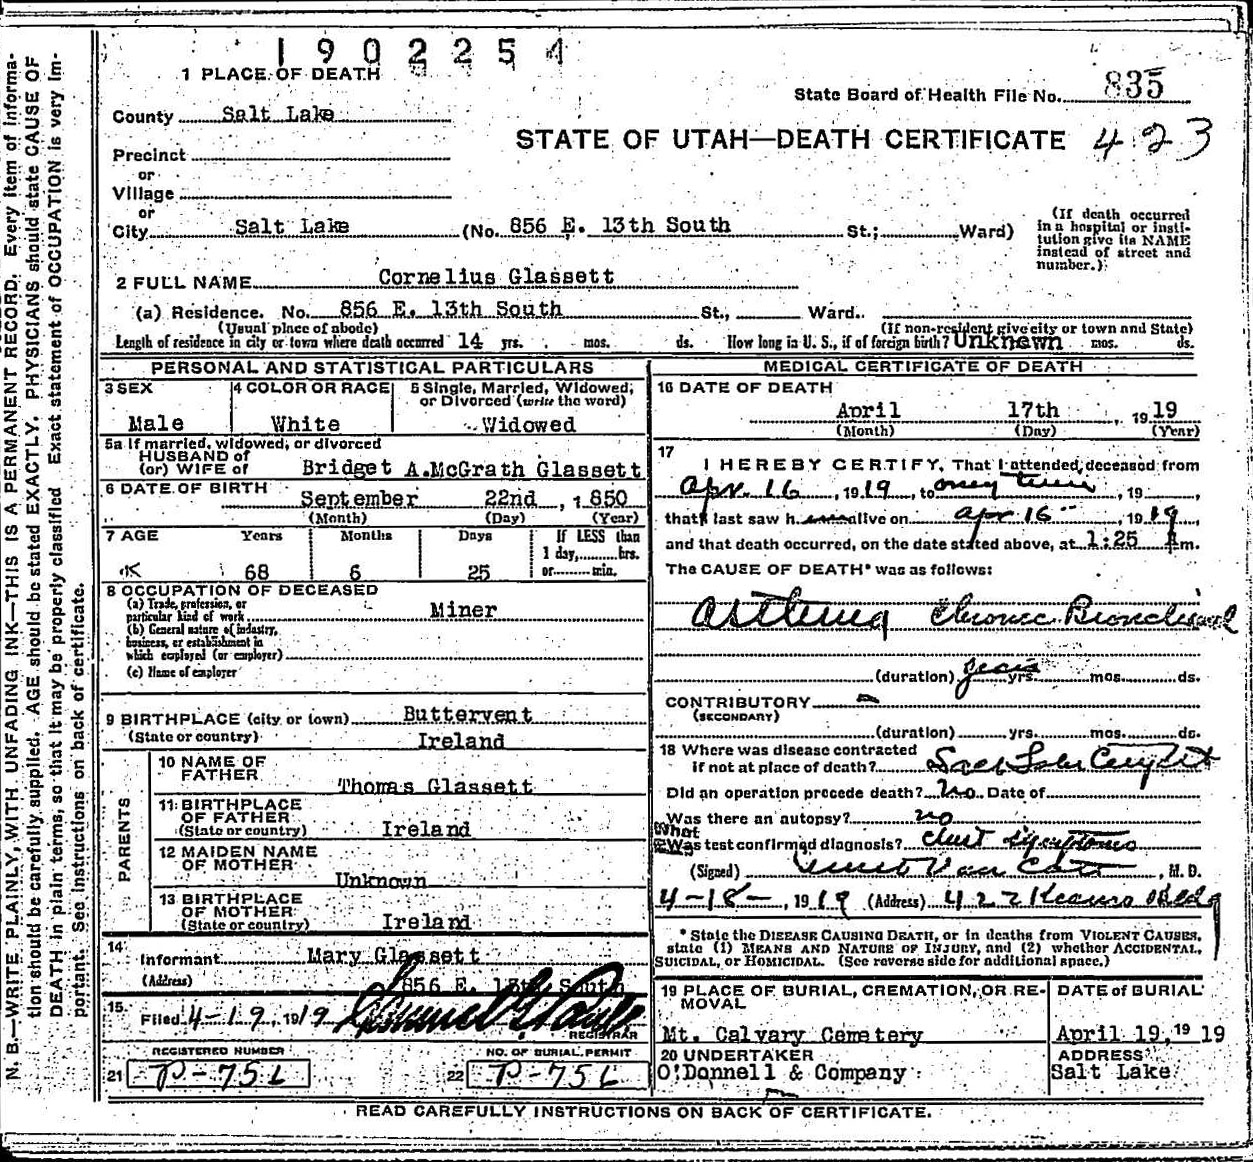 1902254
1 PLACE OF DEATH
State Board of Health File No. 835
County Salt Lake
STATE OF UTAH—DEATH CERTIFICATE 423
Precinct
or
Village
or
City Salt Lake (No. 856 E. 13th South St.; Ward)
(If death occurred in a hospital or insti-
tution give its NAME
instead of street and
number.)
2 FULL NAME Cornelius Glassett
(a) Residence. No. 856 E. 13th South St., Ward.
(Usual place of abode) (If non-resident give city or town and State)
Length of residence in city or town where death occurred 14 yrs. mos. ds. How long in U. S., if of foreign birth? Unknown mos. ds.
PERSONAL AND STATISTICAL PARTICULARS
3 SEX Male
4 COLOR OR RACE White
5 Single, Married, Widowed, or Divorced (write the word) Widowed
5a If married, widowed, or divorced
HUSBAND of
(or) WIFE of Bridget A. McGrath Glassett
6 DATE OF BIRTH September 22nd, 1850
(Month) (Day) (Year)
7 AGE Years Months Days If LESS than
1 day, hrs.
or min.
68 6 25
8 OCCUPATION OF DECEASED
(a) Trade, profession, or
particular kind of work Miner
(b) General nature of industry,
business, or establishment in
which employed (or employer)
(c) Name of employer
9 BIRTHPLACE (city or town) Buttervent
(State or country) Ireland
PARENTS
10 NAME OF
FATHER Thomas Glassett
11 BIRTHPLACE
OF FATHER
(State or country) Ireland
12 MAIDEN NAME
OF MOTHER Unknown
13 BIRTHPLACE
OF MOTHER
(State or country) Ireland
14 Informant Mary Glassett
(Address) 856 E. 13th South
15 Filed 4-19, 1919
REGISTRAR
REGISTERED NUMBER NO. OF BURIAL PERMIT
21 P-756 22 P-756
MEDICAL CERTIFICATE OF DEATH
16 DATE OF DEATH
April 17th, 1919
(Month) (Day) (Year)
17
I HEREBY CERTIFY, That I attended deceased from
Apr. 16, 1919, to , 19 ,
that I last saw h alive on Apr 16, 1919,
and that death occurred, on the date stated above, at 1:25 m.
The CAUSE OF DEATH* was as follows:
Asthma Chronic Bronchial
(duration) years yrs. mos. ds.
CONTRIBUTORY
(SECONDARY)
(duration) yrs. mos. ds.
18 Where was disease contracted
if not at place of death? Salt Lake
Did an operation precede death? No Date of
Was there an autopsy? no
What
Was test confirmed diagnosis? Chest Symptoms
(Signed) Van Cott, M. D.
4-18-, 1919 (Address) 422 Kearns Bldg
* State the DISEASE CAUSING DEATH, or in deaths from VIOLENT CAUSES,
state (1) MEANS AND NATURE OF INJURY, and (2) whether ACCIDENTAL,
SUICIDAL, or HOMICIDAL. (See reverse side for additional space.)
19 PLACE OF BURIAL, CREMATION, OR RE-
MOVAL
Mt. Calvary Cemetery
DATE of BURIAL
April 19, 19 19
20 UNDERTAKER
O'Donnell & Company
ADDRESS
Salt Lake
READ CAREFULLY INSTRUCTIONS ON BACK OF CERTIFICATE.
N. B.—WRITE PLAINLY, WITH UNFADING INK—THIS IS A PERMANENT RECORD. Every item of informa-
tion should be carefully supplied. AGE should be stated EXACTLY. PHYSICIANS should state CAUSE OF
DEATH in plain terms, so that it may be properly classified. Exact statement of OCCUPATION is very im-
portant. See instructions on back of certificate.